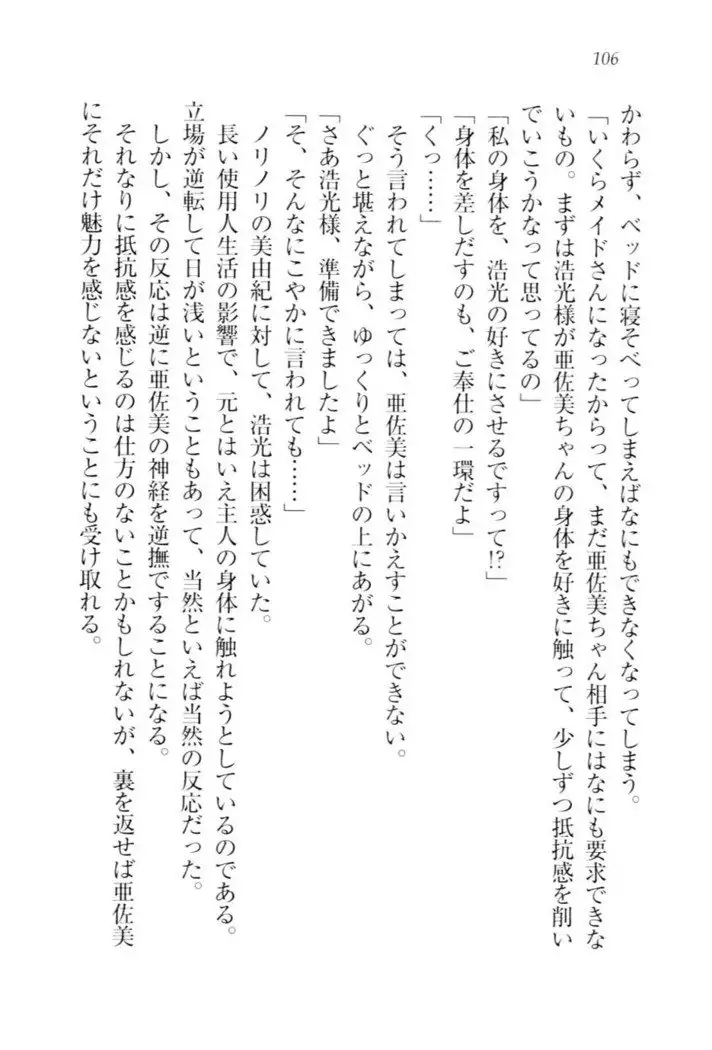 106
かわらず、ベッドに寝そべってしまえばなにもできなくなってしまう。
「いくらメイドさんになったからって、まだ亜佐美ちゃん相手にはなにも要求できな
いもの。まずは浩光様が亜佐美ちゃんの身体を好きに触って、少しずつ抵抗感を削い
でいこうかなって思ってるの」
「私の身体を、浩光の好きにさせるですって!?」
「身体を差しだすのも、ご奉仕の一環だよ」
「くっ……」
そう言われてしまっては、亜佐美は言いかえすことができない。
ぐっと堪えながら、ゆっくりとベッドの上にあがる。
「さあ浩光様、準備できましたよ」
「そ、そんなにこやかに言われても……」
ノリノリの美由紀に対して、浩光は困惑していた。
長い使用人生活の影響で、元とはいえ主人の身体に触れようとしているのである。
立場が逆転して日が浅いということもあって、当然といえば当然の反応だった。
しかし、その反応は逆に亜佐美の神経を逆撫ですることになる。
それなりに抵抗感を感じるのは仕方のないことかもしれないが、裏を返せば亜佐美
にそれだけ魅力を感じないということにも受け取れる。